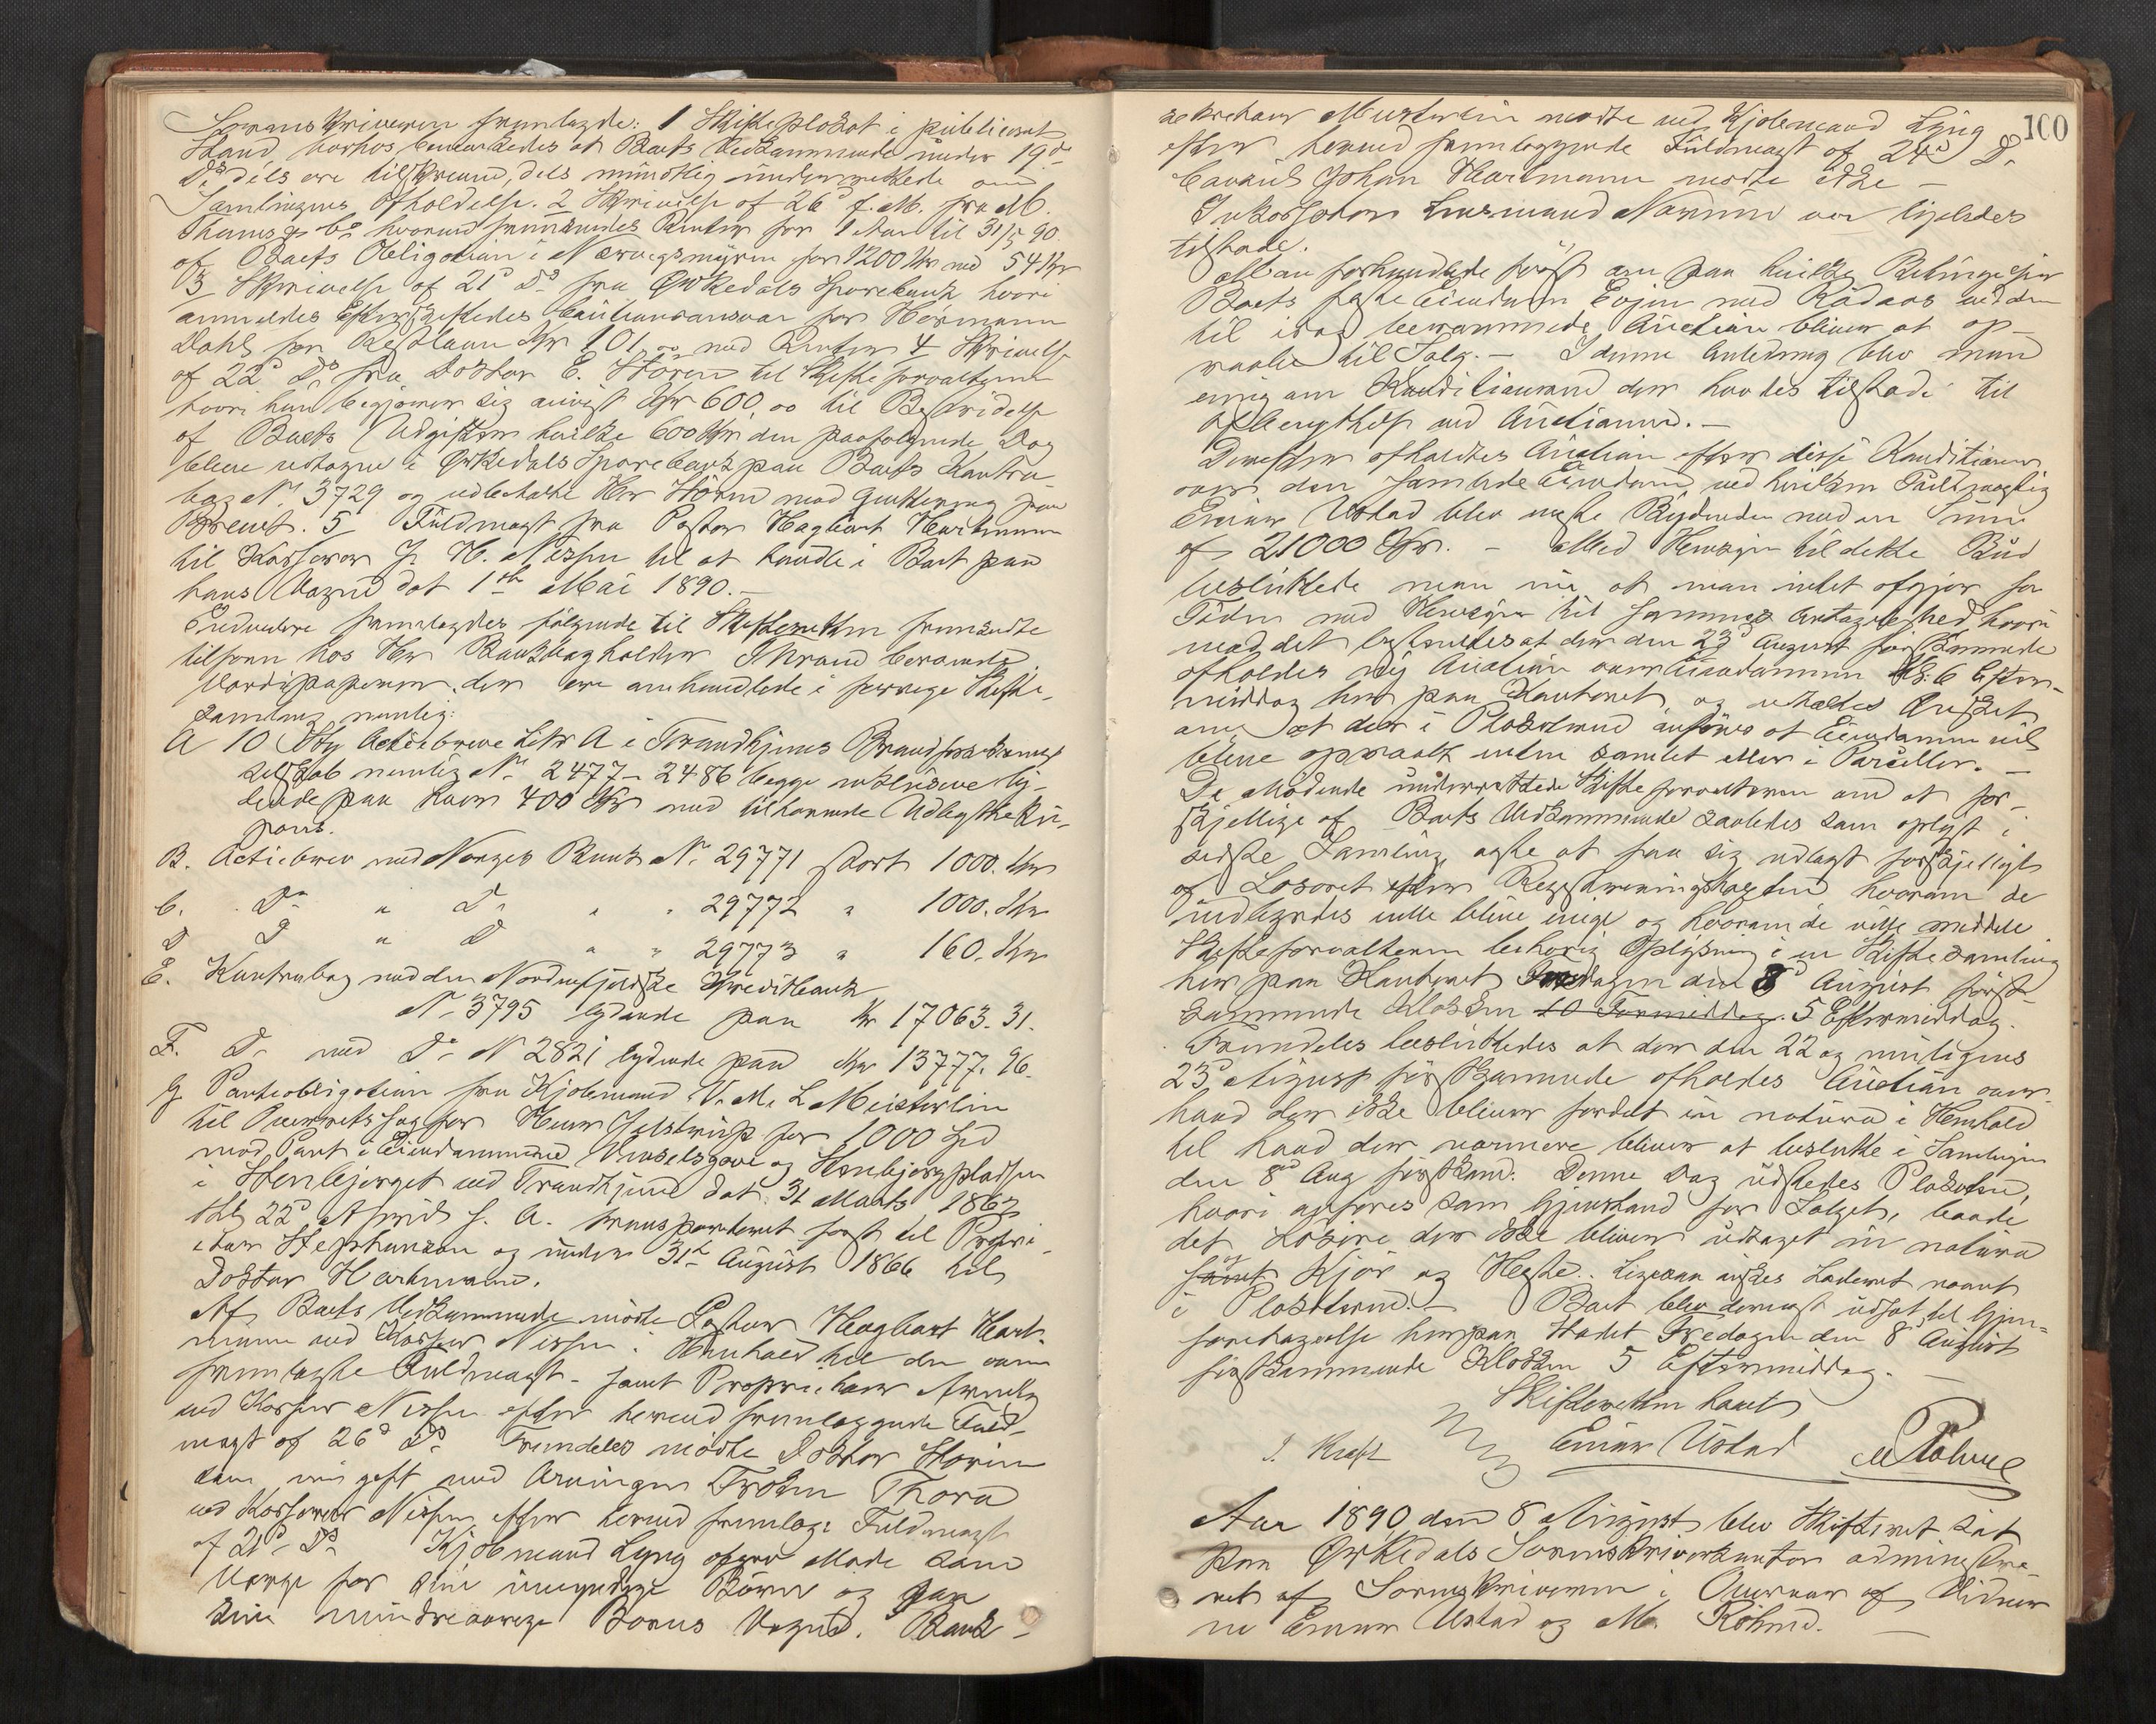 Sorenskriveren fremlagde: 1 Skifteplakat i publiceret
Stand, hvorhos bemærkedes at Boets Vedkommende under 19de
Ds. dels ere tilskrevne, dels mundtlig underrettede om
Samlingens Afholdelse. 2 Skrivelse af 26de f. M. fra M.
Thams & Co hvormed fremsendes Renter for 1 Aar til 31/5 90
af Boets Obligation i Nervegsmyren for 1200 Kr med 54 Kr
3 Skrivelse af 21de Ds. fra Ørkedals Sparebank hvori
anmeldes Efterskiftedes Cautionsansvar for Hermann
Dahl for Restlaan Kr 101,00 med Renter 4 Skrivelse
af 22de Ds. fra Doktor E. Støren til Skifteforvalteren
hvori han begjærer sig anvist Kr 600,00 til Bestridelse
af Boets Udgifter hvilke 600 Kr den paafølgende Dag
bleve udtagne i Ørkedals Sparebank paa Boets Kontra-
bog No 3729 og udbetalte Hr Støren mod Qvittering paa
Brevet. 5 Fuldmagt fra Pastor Hagbart Hartmann
til Kasserer J. H. Nissen til at handle i Boet paa
hans Vegne dat 1ste Mai 1890.
Endvidere fremlagdes følgende til Skifteretten fremsendte
tilforn hos Hr Bankbogholder Strand beroende
Værdipapirer, der ere omhandlede i forrige Skifte-
samling nemlig:
A 10 Stk Actiebreve Litr A i Trondhjems Brandforsikrings
selskab nemlig No 2477-2486 begge inklusive ly-
dende paa hver 400 Kr med tilhørende Udbytteku-
pons.
B. Actiebrev med Norges Bank No 29771 stort 1000. Kr
C. Do " Do " " 29772 " 1000. Kr
D D " D " " 29773 " 160. Kr
E. Kontrabog med den Nordenfjeldske Kreditbank
No 3795 lydende paa Kr 17063.31.
F. Do med Do No 2821 lydende paa Kr 13777.96.
G Panteobligation fra Kjøbmand V. M. L Meisterlin
til Overretssagfører Jelstrup for 1000 Spd
mod Pant i Eiendommene og Stenbjergpladsen
i Stenbjerget ved Trondhjem dat. 31 Marts 1863
thl 22de April s. A. transporteret først til Propri-
etær Stephanson og under 31te August 1866 til
Doktor Hartmann.
Af Boets Vedkommende mødte Pastor Hagbart Hart-
mann ved Kasserer Nissen i Henhold til den oven
fremlagte Fuldmagt - samt Proprietær Arnulf
ved Kasserer Nissen efter herved fremlæggende Fuld-
magt af 26de Ds. Fremdeles mødte Doktor Støren
som nu gift med Arvingen Frøken Thora
ved Kasserer Nissen efter herved fremlagt Fuldmagt
af 21de Ds. Kjøbmand Lyng afgav Møde som
Værge for sine umyndige Børn og paa
sine mindreaarige Børns Vegne. Bank-
100
sekretær Meisterlin mødte ved Kjøbmand Lyng
efter herved fremlæggende Fuldmagt af 24de Ds.
Johan Hartmann mødte ikke -
Inkassator Lensmand var ligeledes
tilstede.
Man forhandlede først om paa hvilke Betingelser
Boets faste Eiendom Evjen med Raaaas ved den
til idag berammede Auction bliver at op-
raabe til Salg. - I denne Anledning blev man
enig om Konditionerne der havdes tilstede til
Afbenyttelse ved Auctionen. -
Derefter afholdtes Auction efter disse Konditioner
over den samlede Eiendom ved hvilken Fuldmægtig
Einar Ustad blev høiste Bydende med en Sum
af 21000 Kr. - Med Hensyn til dette Bud
besluttede man nu at man intet afgjør for
Tiden med Hensyn til sammes Antagelighed, hvori-
mod det bestemtes at der den 23de August førstkommende
afholdes ny Auction over Eiendommen Kl: 6 Efter-
middag her paa Kontoret og udtaltes Ønsket
om at der i Plakaterne anføres at Eiendommen vil
blive opraabt enten samlet eller i Parceller. -
De Mødende underrettede Skifteforvalteren om at for-
skjellige af Boets Vedkommende saaledes som oplyst i
sidste Samling agte at faa sig udlagt forskjelligt
af Løsøret efter Registreringstaxten hvorom de
indbyrdes ville blive enige og hvorom de ville meddele
Skifteforvalteren behørig Oplysning i en Skiftesamling
her paa Kontoret Fredagen den 8de August først-
kommende Klokken 10 Formiddag. 5 Eftermiddag.
Fremdeles besluttedes at der den 22 og muligens
23de August førstkommende afholdes Auction over
hvad der ikke bliver fordelt in natura i Henhold
til hvad der nærmere bliver at beslutte i Samlingen
den 8de Aug førstkom. Denne Dag udstedes Plakaten,
hvori anføres som Gjenstand for Salget, baade
det Løsøre der ikke bliver udtaget in natura
samt og Kjør og Heste. Ligesaa ønskes Laderet nævnt
i Plakaterne. - Boet blev dernæst udsat til Gjen-
foretagelse her paa Stedet Fredagen den 8de August
førstkommende Klokken 5 Eftermiddag. -
Skifteretten hævet
J. Kraft Einar Ustad M Røhme
Aar 1890 den 8 August blev Skifteret sat
paa Ørkedals Sorenskriverkontor administre-
ret af Sorenskriveren i Overvær af Vidner
ne Einar Ustad og M. Røhme. -